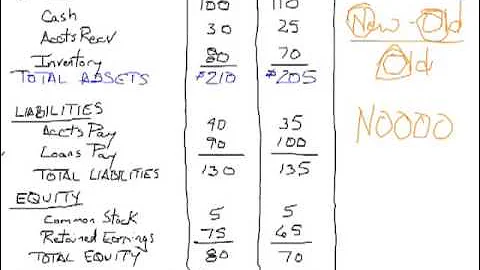 Cash 100 110
Accts Recv 30 25
Inventory 80 70
TOTAL ASSETS $210 $205
LIABILITIES
Accts Pay 40 35
Loans Pay 90 100
TOTAL LIABILITIES 130 135
EQUITY
Common Stock 5 5
Retained Earnings 75 65
TOTAL EQUITY 80 70
New - Old
Old
NOOOO